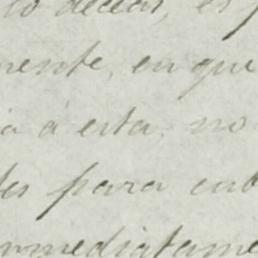 lo decía, es p
mente, en que
ia á esta, no
tes para cub
inmediatame